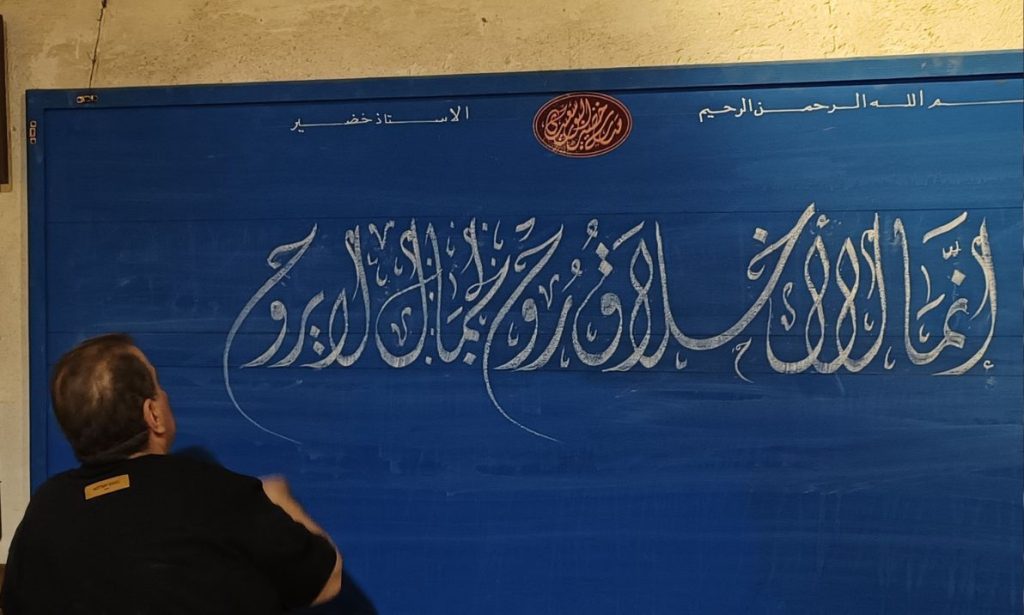 بسم الله الرحمن الرحيم
الاستاذ خضير
إنَّمَا الأخلَاق رُوح لجمال لا يروح